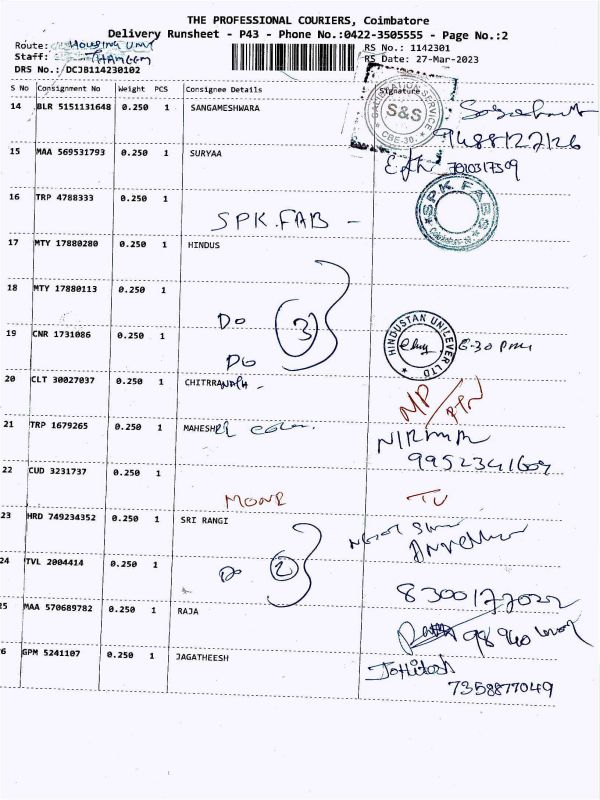 THE PROFESSIONAL COURIERS, Coimbatore
Delivery Runsheet - P43 - Phone No.:0422-3505555 - Page No.:2
Route: HOUSING UNIT RS No.: 1142301
Staff: RS Date: 27-Mar-2023
DRS No.: DCJB114230102
S No Consignment No Weight PCS Consignee Details Signature
14 BLR 5151131648 0.250 1 SANGAMESHWARA
S&S
CBE-30.
9488127126
15 MAA 569531793 0.250 1 SURYAA 7010317509
16 TRP 4788333 0.250 1 SPK.FAB -
SPK FABS
17 MTY 17880280 0.250 1 HINDUS
18 MTY 17880113 0.250 1 Do 3
HINDUSTAN UNILEVER LTD.
19 CNR 1731086 0.250 1 Do 6-30 pm
20 CLT 30027037 0.250 1 CHITRRA
21 TRP 1679265 0.250 1 MAHESH
22 CUD 3231737 0.250 1
23 HRD 749234352 0.250 1 SRI RANGI
24 TVL 2004414 0.250 1 Do 2
8300177022
25 MAA 570689782 0.250 1 RAJA
26 GPM 5241107 0.250 1 JAGATHEESH
7358877049